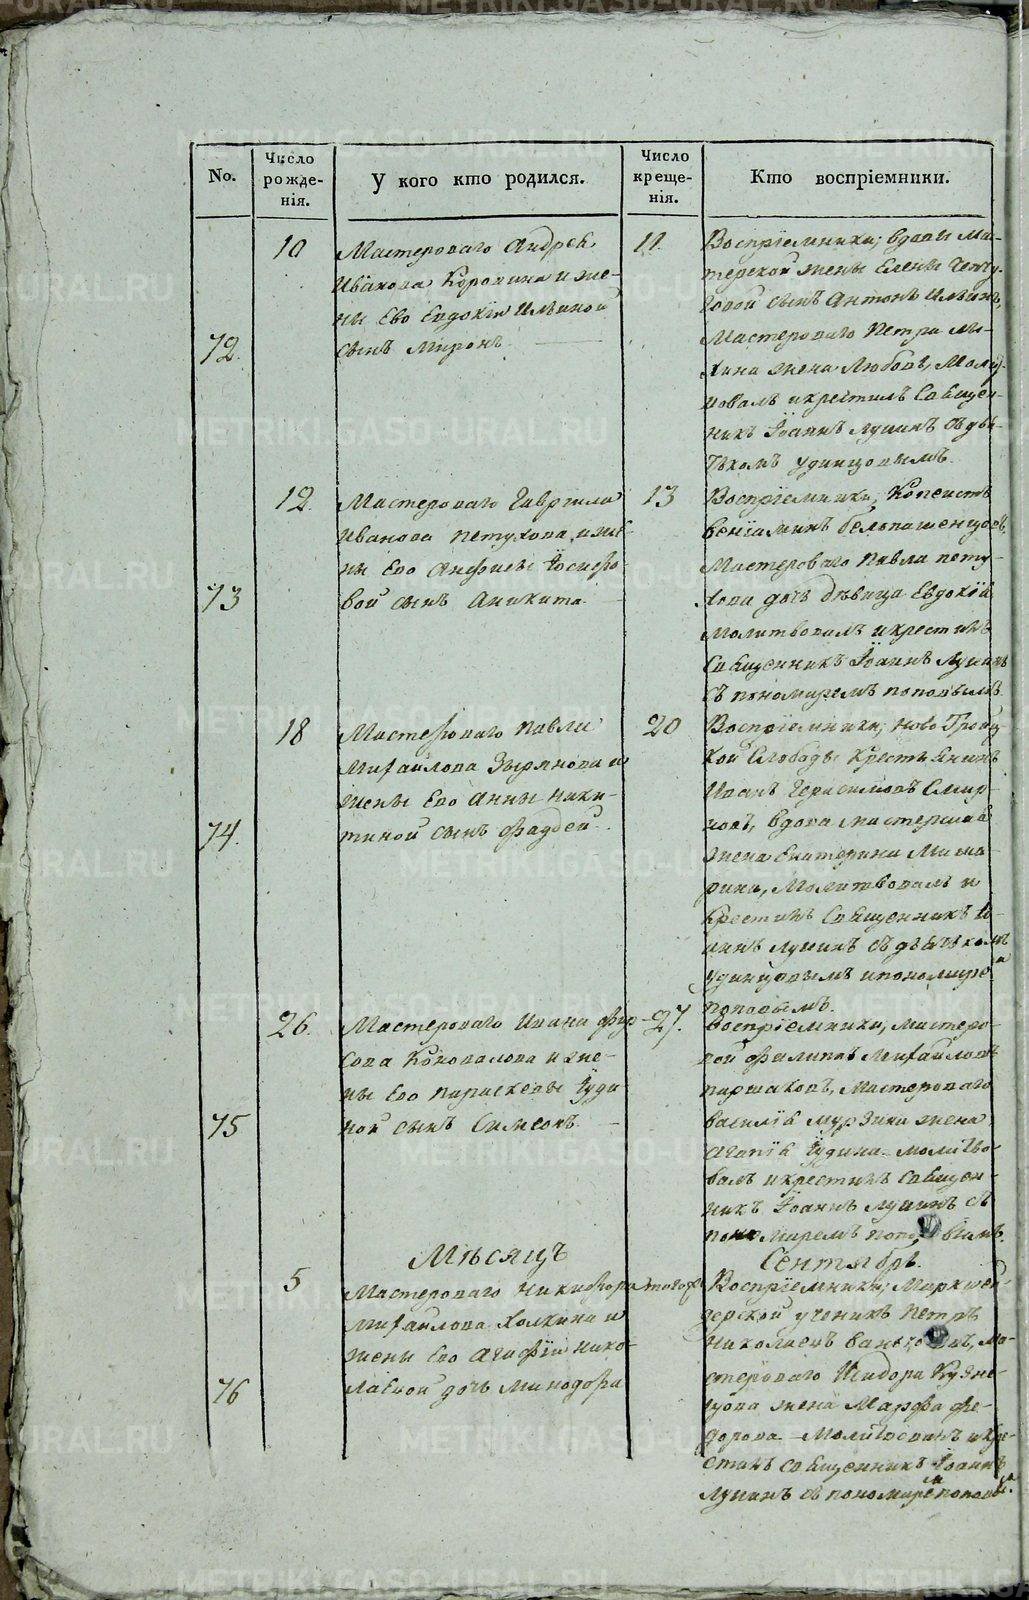 No.
Число рожде- нія.
У кого кто родился.
Число креще- нія.
Кто воспріемники.
72.
10
Мастероваго Андрея
Иванова Коровина и же-
ны Его Евдокіи Ильиной
сынъ Миронъ
11.
Воспріемники; вдовы Мас-
терской жены Елены
сынъ Антонъ Ильинъ,
Мастероваго Петра
жена Любовь, Молит-
вовалъ и крестилъ Священ-
никъ Іоаннъ Лунинъ съ дья-
чкомъ Удинцовымъ.
73
12.
Мастероваго Гаврила
Иванова Петухова и же-
ны Его Анфисы Іосифо-
вой сынъ Аникита
13
Воспріемники; Копеистъ
Веніаминъ Бельпашенцовъ,
Мастероваго Павла Пету-
хова дочь девица Евдокія
Молитвовалъ и крестилъ
Священникъ Іоаннъ Лунинъ
съ пономаремъ Поповымъ.
74.
18
Мастероваго Павла
Михайлова Зырянова и
жены Его Анны Ники-
тиной сынъ Фаддей.
20
Воспріемники; Ново Троиц-
кой Слободы Крестьянинъ
Иванъ Герасимовъ Смир-
новъ, вдова мастерская
жена Екатерина
Молитвовалъ и
Крестилъ Священникъ Іо-
аннъ Лунинъ съ дьячкомъ
Удинцовымъ и пономаремъ
Поповымъ.
75
26.
Мастероваго Ивана Фир-
сова Коновалова и же-
ны Его Параскевы Іуди-
ной сынъ Симеонъ.
27.
Воспріемники, мастеро-
вой Филипъ Михайловъ
Паршаковъ, Мастероваго
Василія Мурзина жена
Агапія Іудина. Молитво-
валъ и крестилъ Священ-
никъ Іоаннъ Лунинъ съ
пономаремъ Поповымъ.
Мѣсяцъ
Сентябрь.
76
5
Мастероваго Никифора
Михайлова Холкина и
жены Его Агафіи Нико-
лаевой дочь Минодора
тогоже
Воспріемники; Маркшей-
дерской ученикъ Петръ
Николаевъ Ма-
стероваго Исидора Кузне-
цова жена Марфа Фе-
дорова. Молитвовалъ и кре-
стилъ Священникъ Іоаннъ
Лунинъ съ пономаремъ Поповы.
METRIKI.GASO-URAL.RU